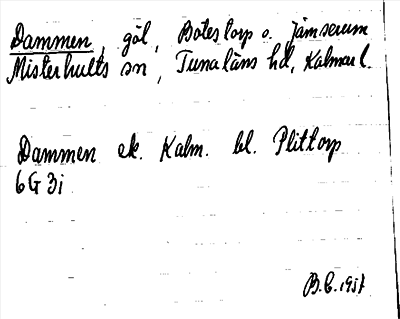 Dammen, göl, Botestorp o. Jämserum
Misterhults sn, Tunaläns hd, Kalmar l.
Dammen ek. Kalm. bl. Plittorp
6G 3i